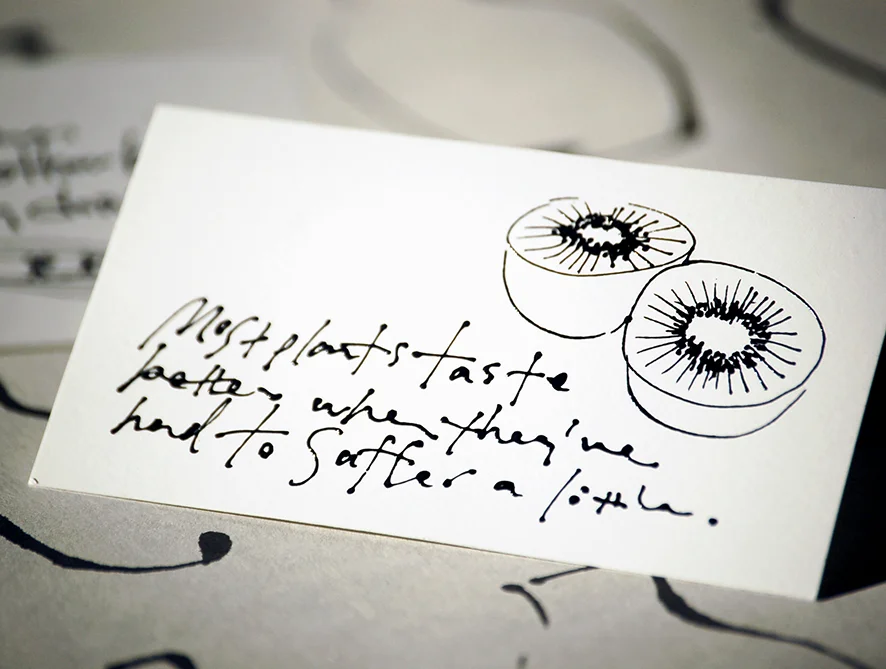 Most plants taste
better when they've
had to suffer a little.